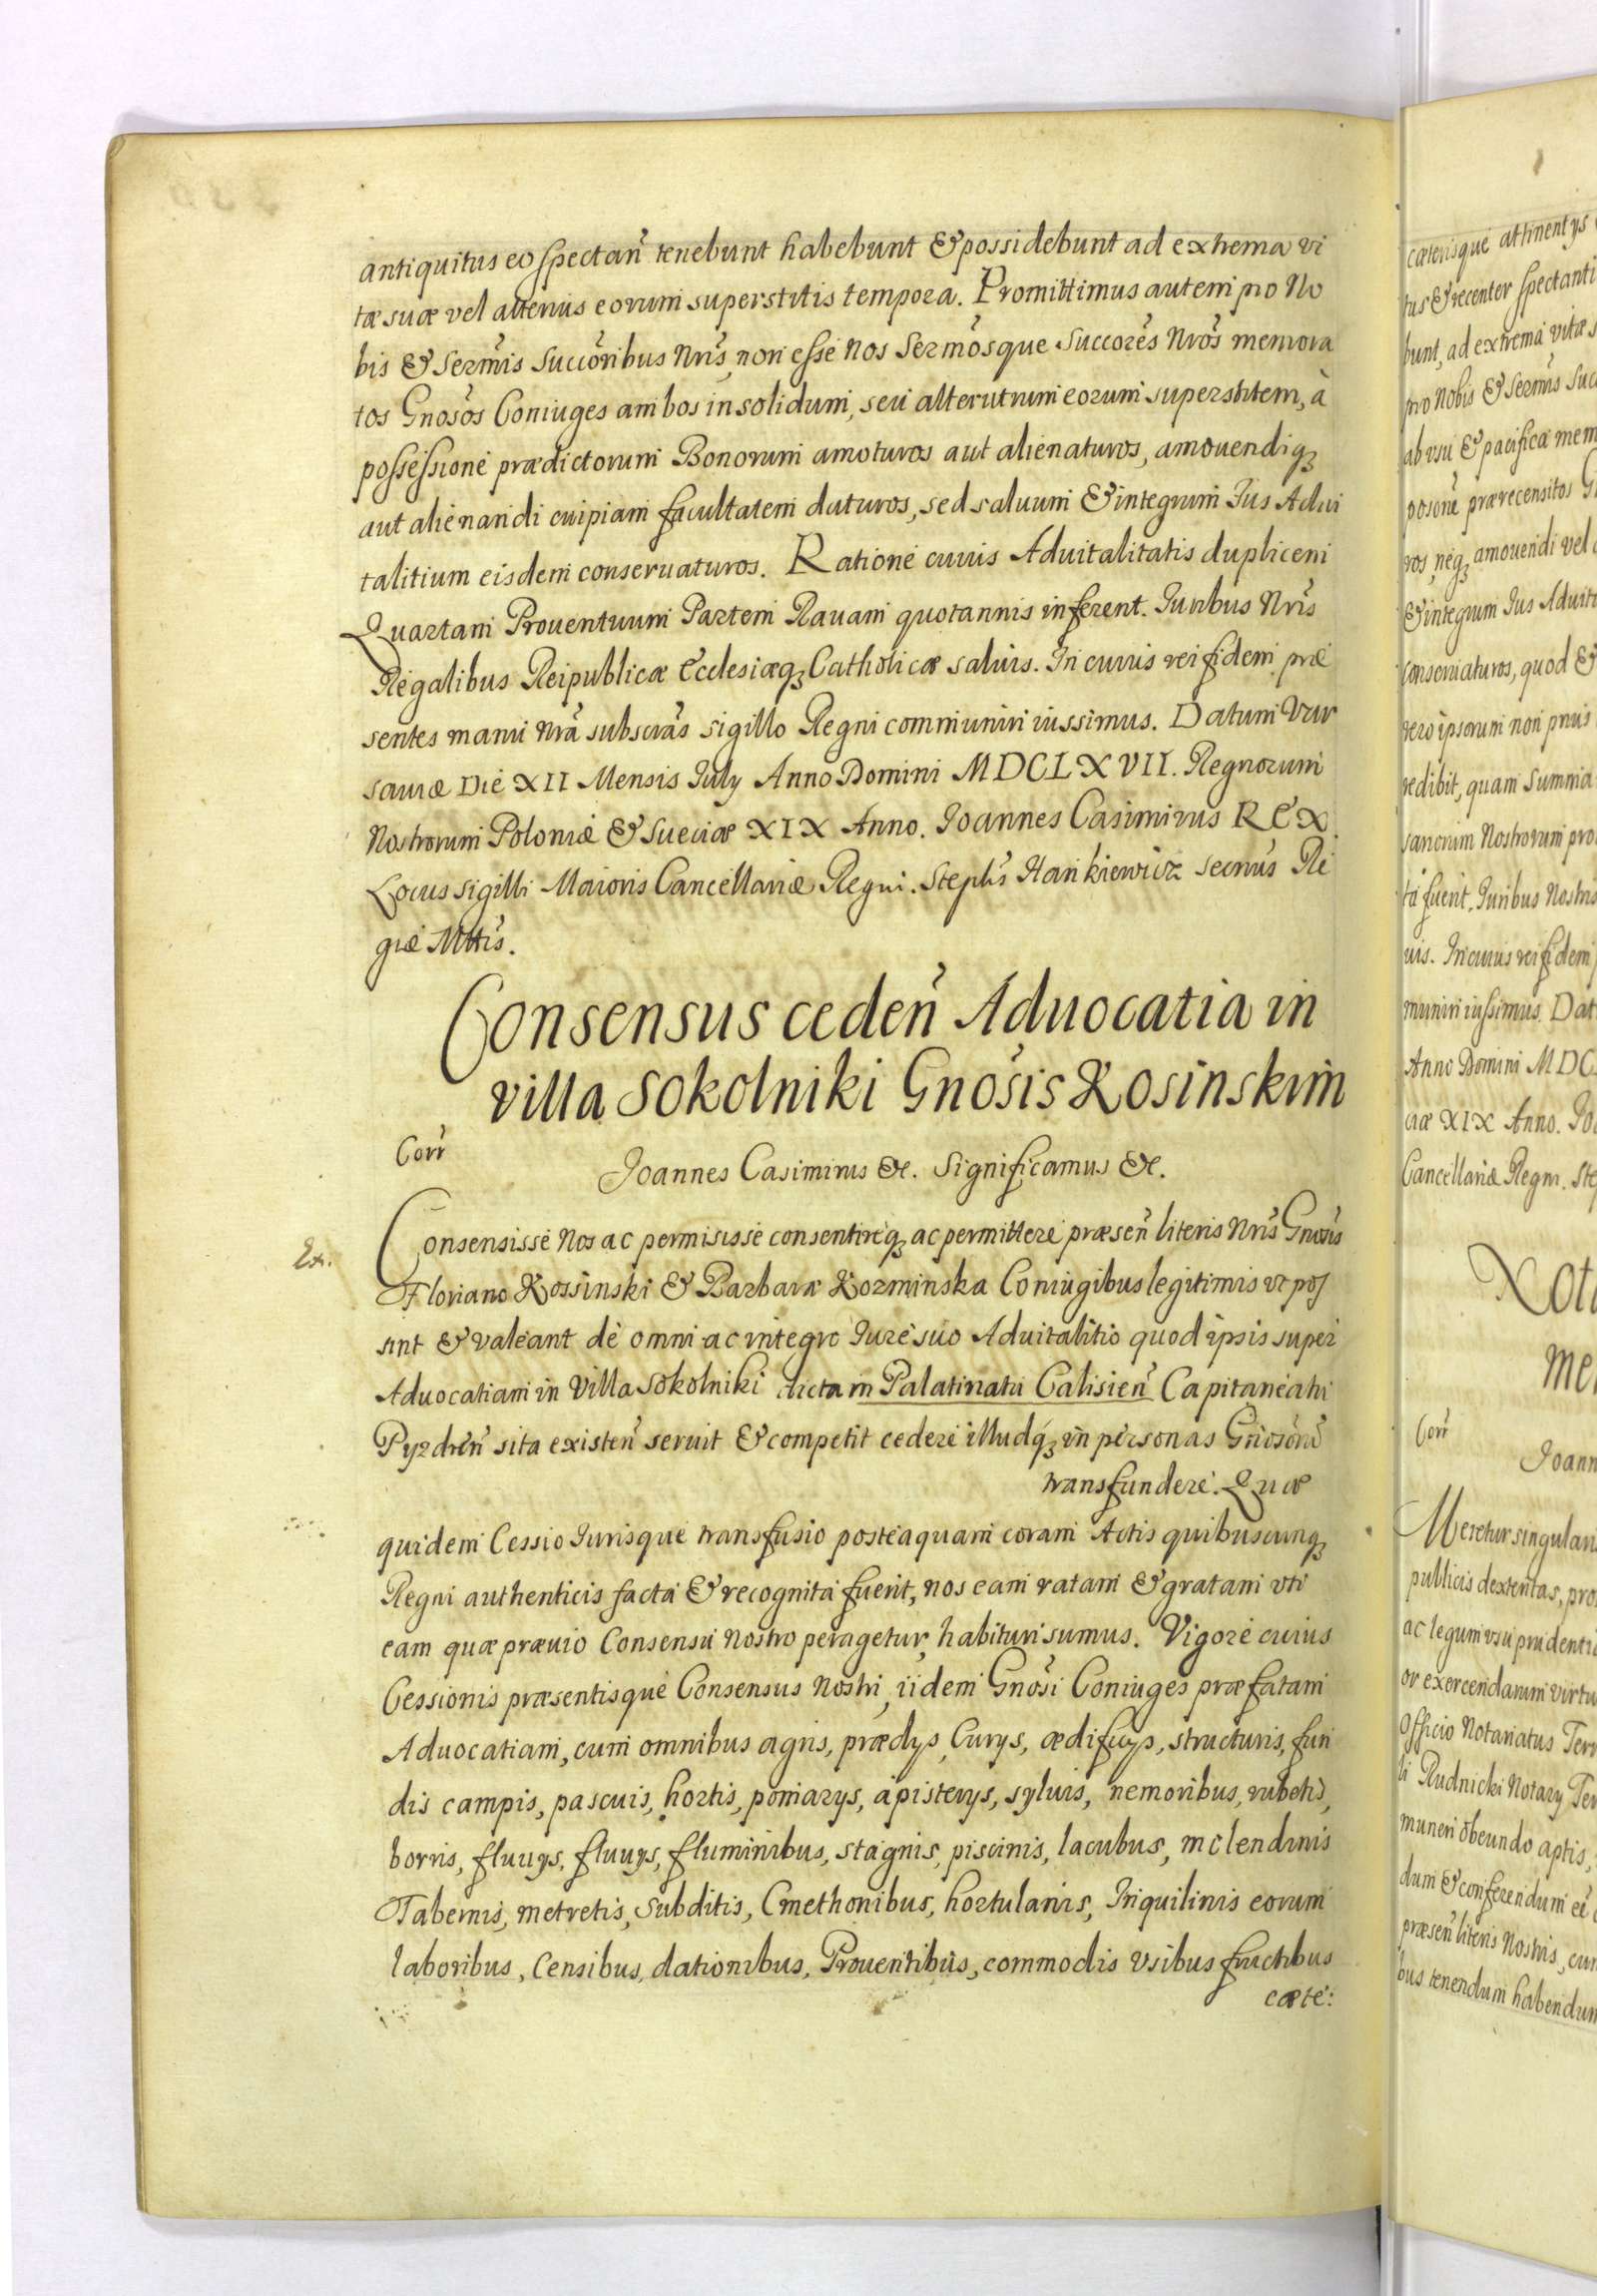 antiquitus eo spectañ tenebunt habebunt & possidebunt ad extrema vi
tæ suæ vel alterius eorum superstitis tempora. Promittimus autem pro No
bis & Serm̃is Succõribus Nr̃is, non esse Nos Serm̃osque Succorẽs Nrõs memora
tos Gnosõs Coniuges ambos in solidum, seu alterutrum eorum superstitem, à
possessione prædictorum Bonorum amoturos aut alienaturos, amouendiqꝫ
aut alienandi cuipiam facultatem daturos, sed saluum & integrum Ius Adui
talitium eisdem conseruaturos. Ratione cuius Aduitalitatis duplicem
Quartam Prouentuum Partem Rauam quotannis inferent. Iuribus Nr̃is
Regalibus Reipublicæ Ecclesiæqꝫ Catholicæ saluis. In cuius rei fidem præ
sentes manu Nrã subscrãs sigillo Regni communiri iussimus. Datum Var
sauiæ Die XII Mensis July Anno Domini MDCLXVII. Regnorum
Nostrorum Poloniæ & Sueciæ XIX Anno. Ioannes Casimirus REX.
Locus sigilli Maioris Cancellariæ Regni. Stephs̃ Hankiewicz Secrius̃ Re
giæ Mttis̃.
Consensus cedeñ Aduocatia in
villa Sokolniki Gnosĩs Kosinskim
Corr̃
Ioannes Casimirus &c. Significamus &c.
Ex.
Consensisse Nos ac permisisse consentireqꝫ ac permittere præseñ literis Nr̃is Gnosĩs
Floriano Kossinski & Barbaræ Kozminska Coniugibus legitimis vt pos
sint & valeant de omni ac integro Iure suo Aduitalitio quod ipsis super
Aduocatiam in Villa Sokolniki dictam Palatinatu Calisieñ Capitaneatu
Pyzdreñ sita existeñ seruit & competit cedere illudqꝫ in personas Gnosorũ
transfundere. Quæ
quidem Cessio Iurisque transfusio posteaquam coram Actis quibuscunqꝫ
Regni authenticis facta & recognita fuerit, nos eam ratam & gratam vti
eam quæ præuio Consensu Nostro peragetur, habituri sumus. Vigore cuius
Cessionis præsentisque Consensus Nostri, iidem Gnosĩ Coniuges præfatam
Aduocatiam, cum omnibus agris, prædys, Curys, ædificys, structuris, fun
dis campis, pascuis, hortis, pomarys, apisterys, syluis, nemoribus, rubetis,
borris, fluuys, fluuys, fluminibus, stagnis, piscinis, lacubus, molendinis
Tabernis, metretis, Subditis, Cmethonibus, hortulanis, Inquilinis eorum
laboribus, Censibus, dationibus, Prouentibus, commodis Vsibus fructibus
cæte:
cæterisque attinentys
tus & recenter spectanti
bunt, ad extrema vitæ s
pro Nobis & Serm̃is Suc
ab vsu & pacifica mem
posonẽ prærecensitos G
ros, neqꝫ amouendi vel
& integrum Ius Aduit
conseruaturos, quod &
vero ipsorum non prius
redibit, quam Summa
sanorum Nostrorum pro
ta fuerit. Iuribus Nostris
uis. In cuius rei fidem
muniri iussimus. Dat
Anno Domini MDC
ciæ XIX Anno. Io
Cancellariæ Regni. Ste
Not
me
Corr̃
Ioann
Meretur singularis
publicis dexteritas, pro
ac legum vsu prudentia
or exercendarum virtu
Officio Notariatus Terr
li Rudnicki Notary Ter
muneri obeundo aptis,
dum & conferendum eẽ
præseñ literis Nostris, cum
bus tenendum habendum